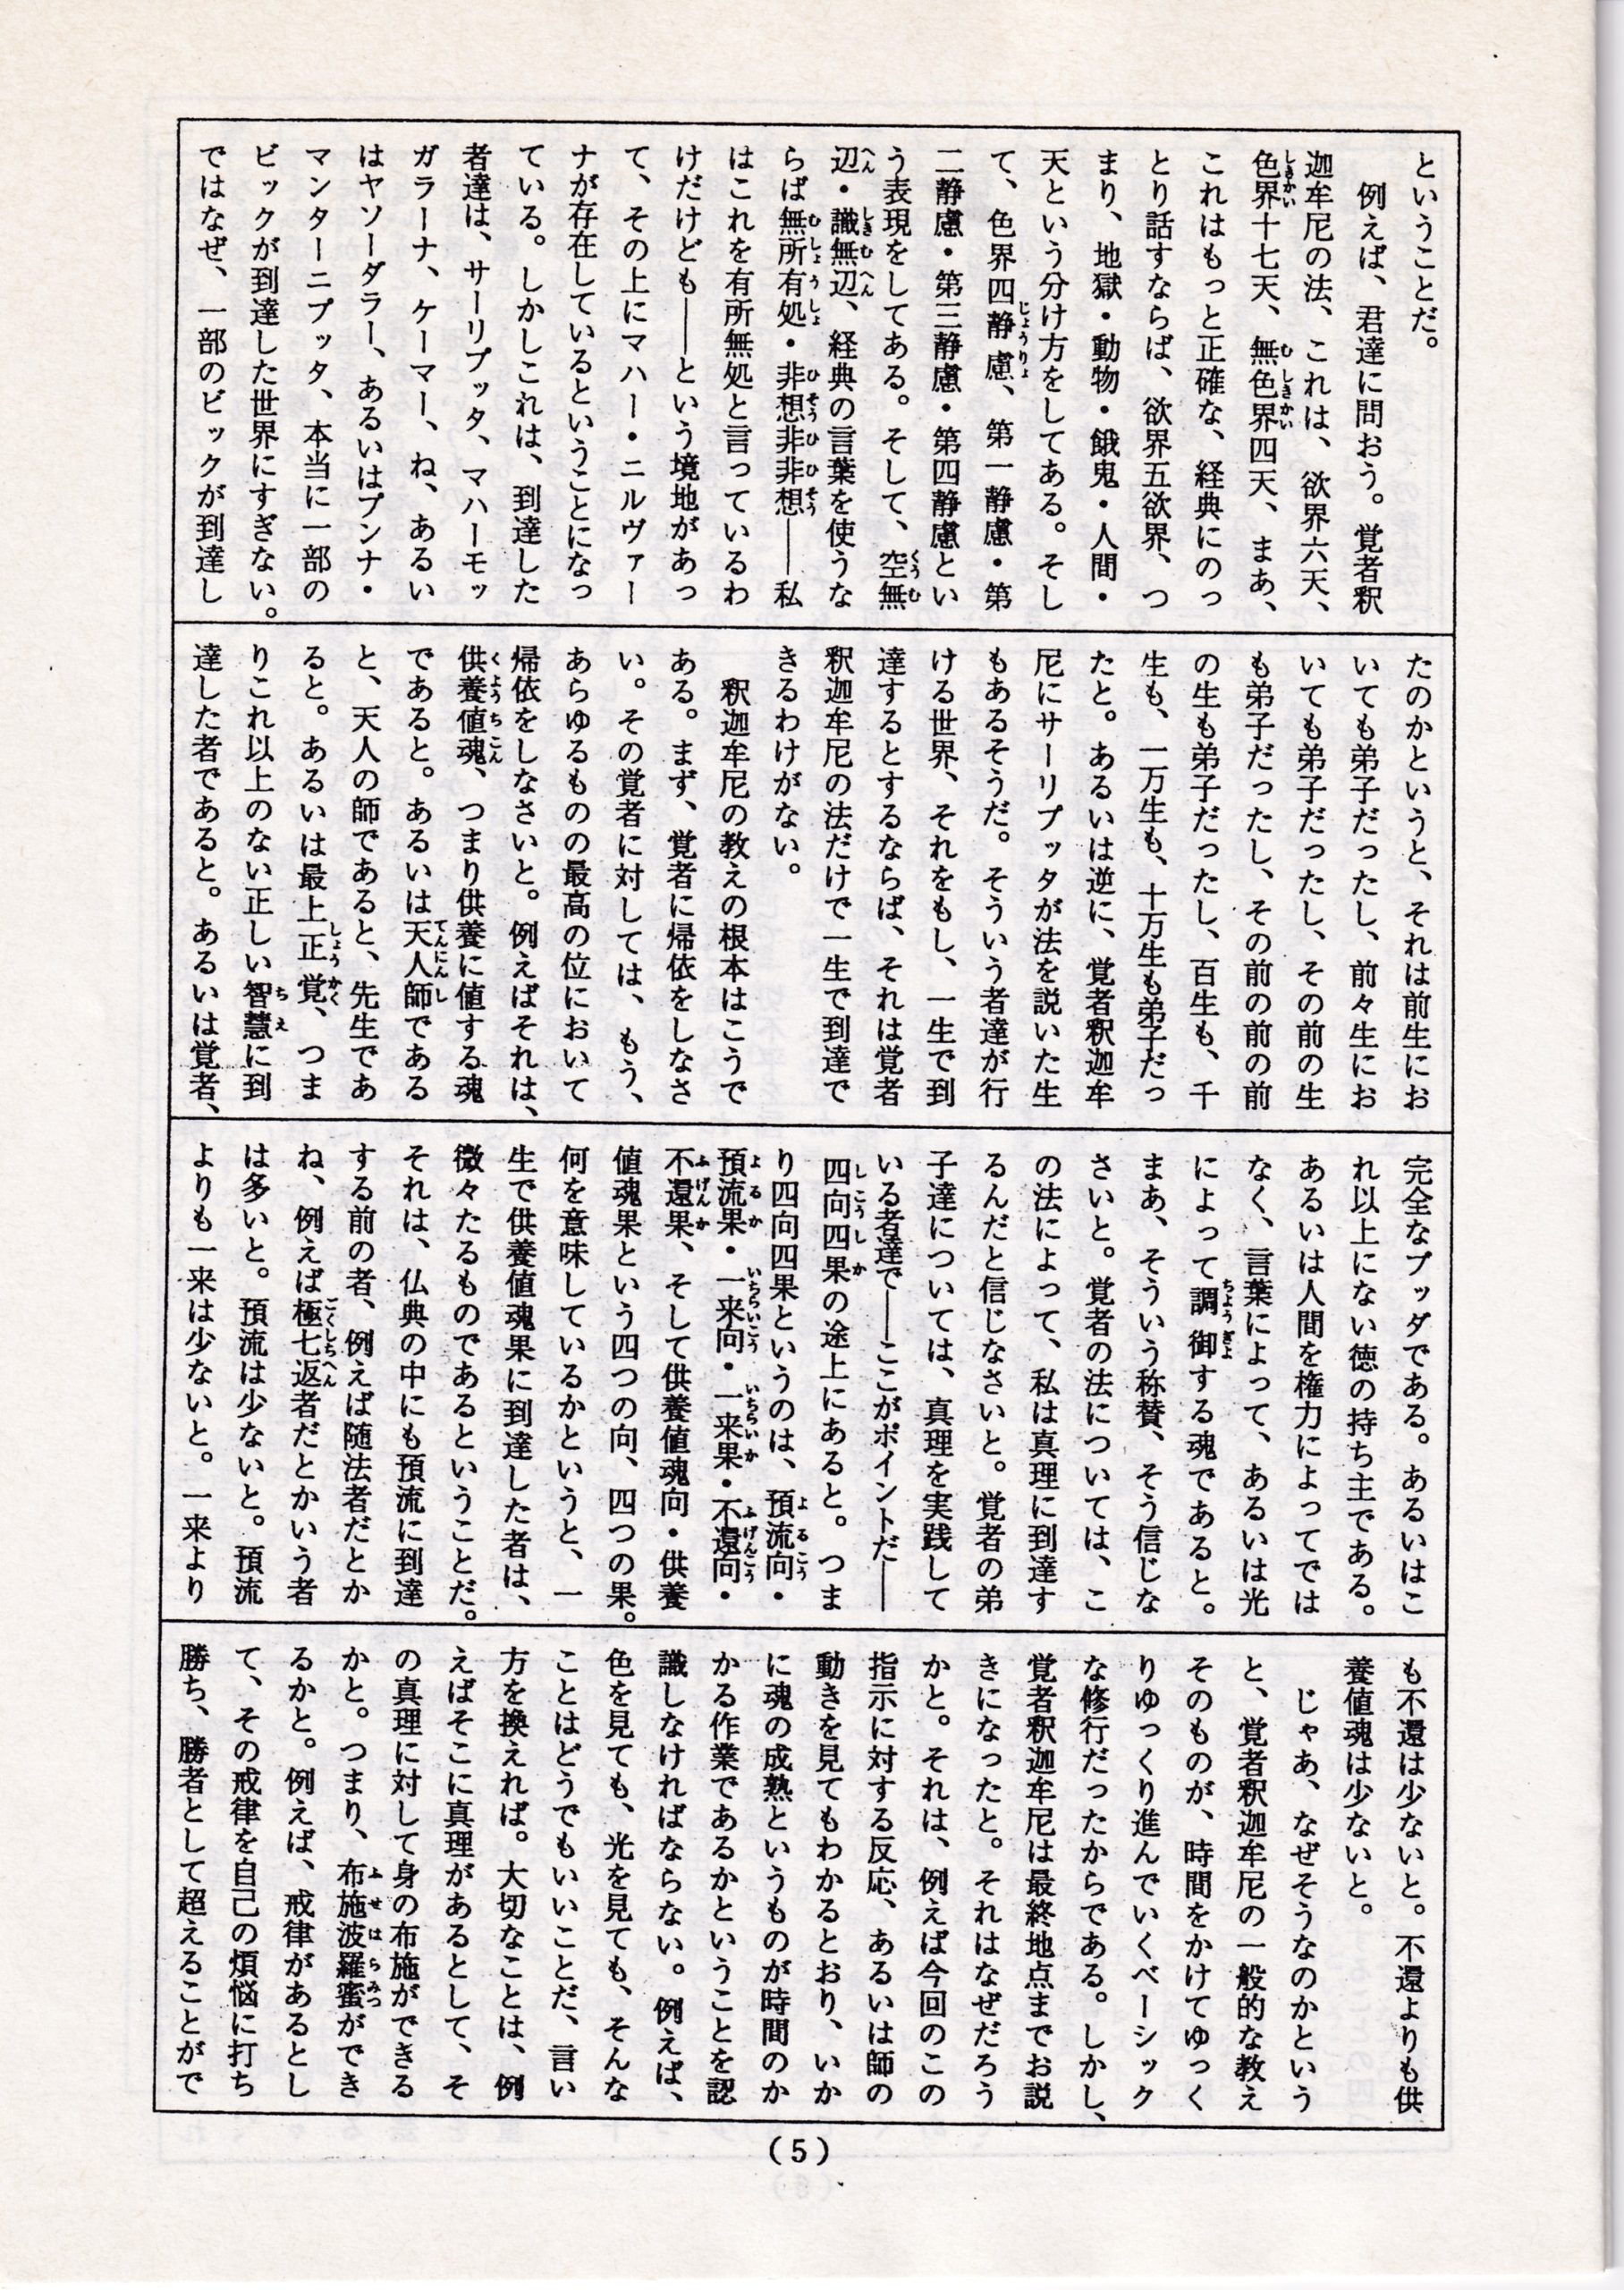 ということだ。
　例えば、君達に問おう。覚者釈
迦牟尼の法、これは、欲界六天、
色界十七天、無色界四天、まあ、
これはもっと正確な、経典にのっ
とり話すならば、欲界五欲界、つ
まり、地獄・動物・餓鬼・人間・
天という分け方をしてある。そし
て、色界四静慮、第一静慮・第
二静慮・第三静慮・第四静慮とい
う表現をしてある。そして、空無
辺・識無辺、経典の言葉を使うな
らば無所有処・非想非非想――私
はこれを有所無処と言っているわ
けだけども――という境地があっ
て、その上にマハー・ニルヴァー
ナが存在しているということになっ
ている。しかしこれは、到達した
者達は、サーリプッタ、マハーモッ
ガラーナ、ケーマー、ね、あるい
はヤソーダラー、あるいはプンナ・
マンターニプッタ、本当に一部の
ビックが到達した世界にすぎない。
ではなぜ、一部のビックが到達し
たのかというと、それは前生にお
いても弟子だったし、前々生にお
いても弟子だったし、その前の生
も弟子だったし、その前の前の前
の生も弟子だったし、百生も、千
生も、一万生も、十万生も弟子だっ
たと。あるいは逆に、覚者釈迦牟
尼にサーリプッタが法を説いた生
もあるそうだ。そういう者達が行
ける世界、それをもし、一生で到
達するとするならば、それは覚者
釈迦牟尼の法だけで一生で到達で
きるわけがない。
　釈迦牟尼の教えの根本はこうで
ある。まず、覚者に帰依をしなさ
い。その覚者に対しては、もう、
あらゆるものの最高の位において
帰依をしなさいと。例えばそれは、
供養値魂、つまり供養に値する魂
であると。あるいは天人師である
と、天人の師であると、先生であ
ると。あるいは最上正覚、つま
りこれ以上のない正しい智慧に到
達した者であると。あるいは覚者、
完全なブッダである。あるいはこ
れ以上にない徳の持ち主である。
あるいは人間を権力によってでは
なく、言葉によって、あるいは光
によって調御する魂であると。
まあ、そういう称賛、そう信じな
さいと。覚者の法については、こ
の法によって、私は真理に到達す
るんだと信じなさいと。覚者の弟
子達については、真理を実践して
いる者達で――ここがポイントだ――
四向四果の途上にあると。つま
り四向四果というのは、預流向・
預流果・一来向・一来果・不還向・
不還果、そして供養値魂向・供養
値魂果という四つの向、四つの果。
何を意味しているかというと、一
生で供養値魂果に到達した者は、
微々たるものであるということだ。
それは、仏典の中にも預流に到達
する前の者、例えば随法者だとか
ね、例えば極七返者だとかいう者
は多いと。預流は少ないと。預流
よりも一来は少ないと。一来より
も不還は少ないと。不還よりも供
養値魂は少ないと。
　じゃあ、なぜそうなのかという
と、覚者釈迦牟尼の一般的な教え
そのものが、時間をかけてゆっく
りゆっくり進んでいくベーシック
な修行だったからである。しかし、
覚者釈迦牟尼は最終地点までお説
きになったと。それはなぜだろう
かと。それは、例えば今回のこの
指示に対する反応、あるいは師の
動きを見てもわかるとおり、いか
に魂の成熟というものが時間のか
かる作業であるかということを認
識しなければならない。例えば、
色を見ても、光を見ても、そんな
ことはどうでもいいことだ、言い
方を換えれば。大切なことは、例
えばそこに真理があるとして、そ
の真理に対して身の布施ができる
かと。つまり、布施波羅蜜ができ
るかと。例えば、戒律があるとし
て、その戒律を自己の煩悩に打ち
勝ち、勝者として超えることがで
(5)